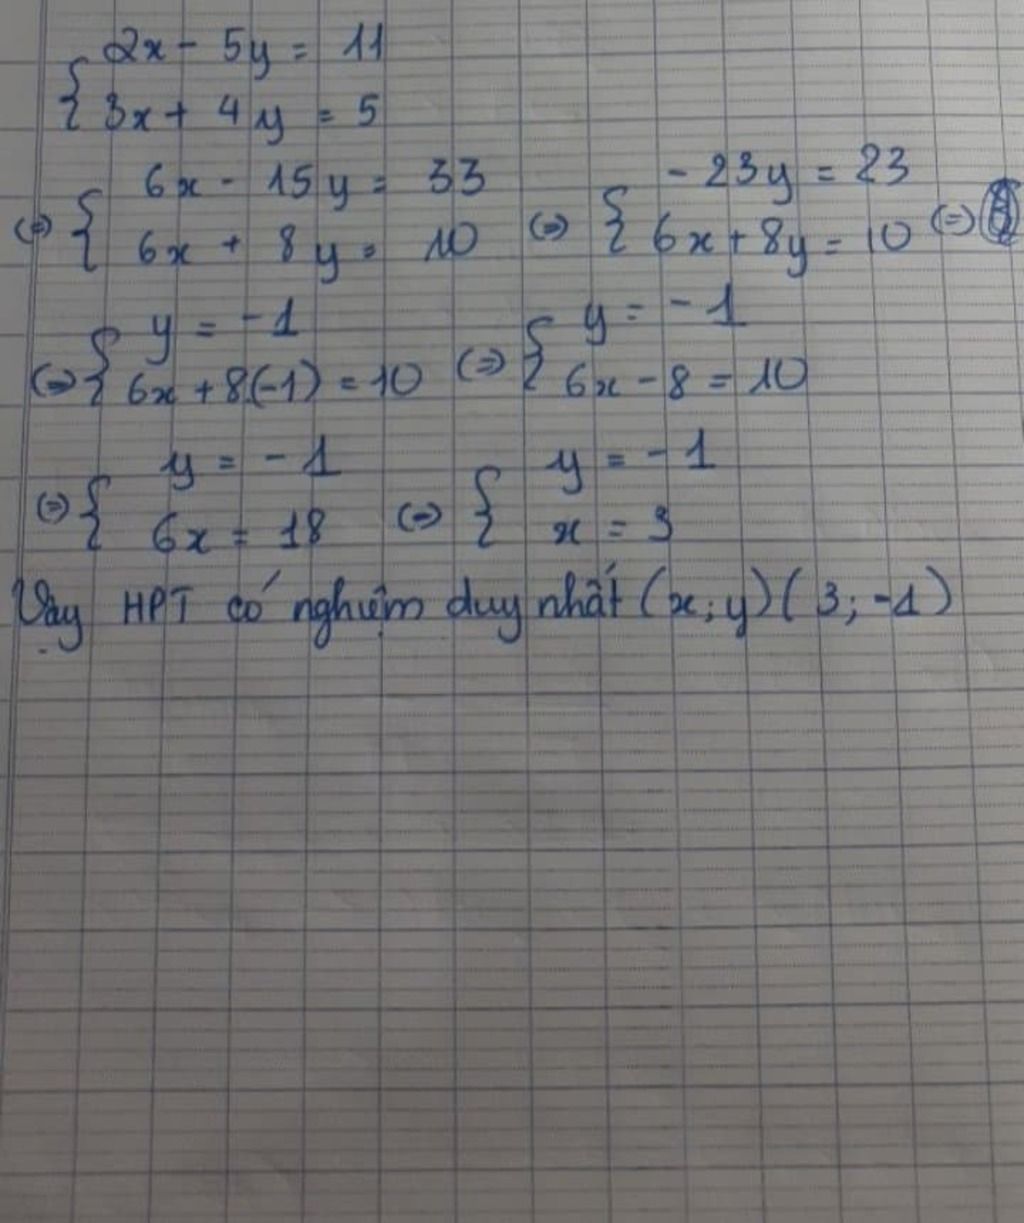 { 2x - 5y = 11
3x + 4y = 5
(=) { 6x - 15y = 33
6x + 8y = 10
(=) { -23y = 23
6x + 8y = 10 (=)
(=) { y = -1
6x + 8(-1) = 10
(=) { y = -1
6x - 8 = 10
(=) { y = -1
6x = 18
(=) { y = -1
x = 3
Vậy HPT có nghiệm duy nhất (x; y) (3; -1)